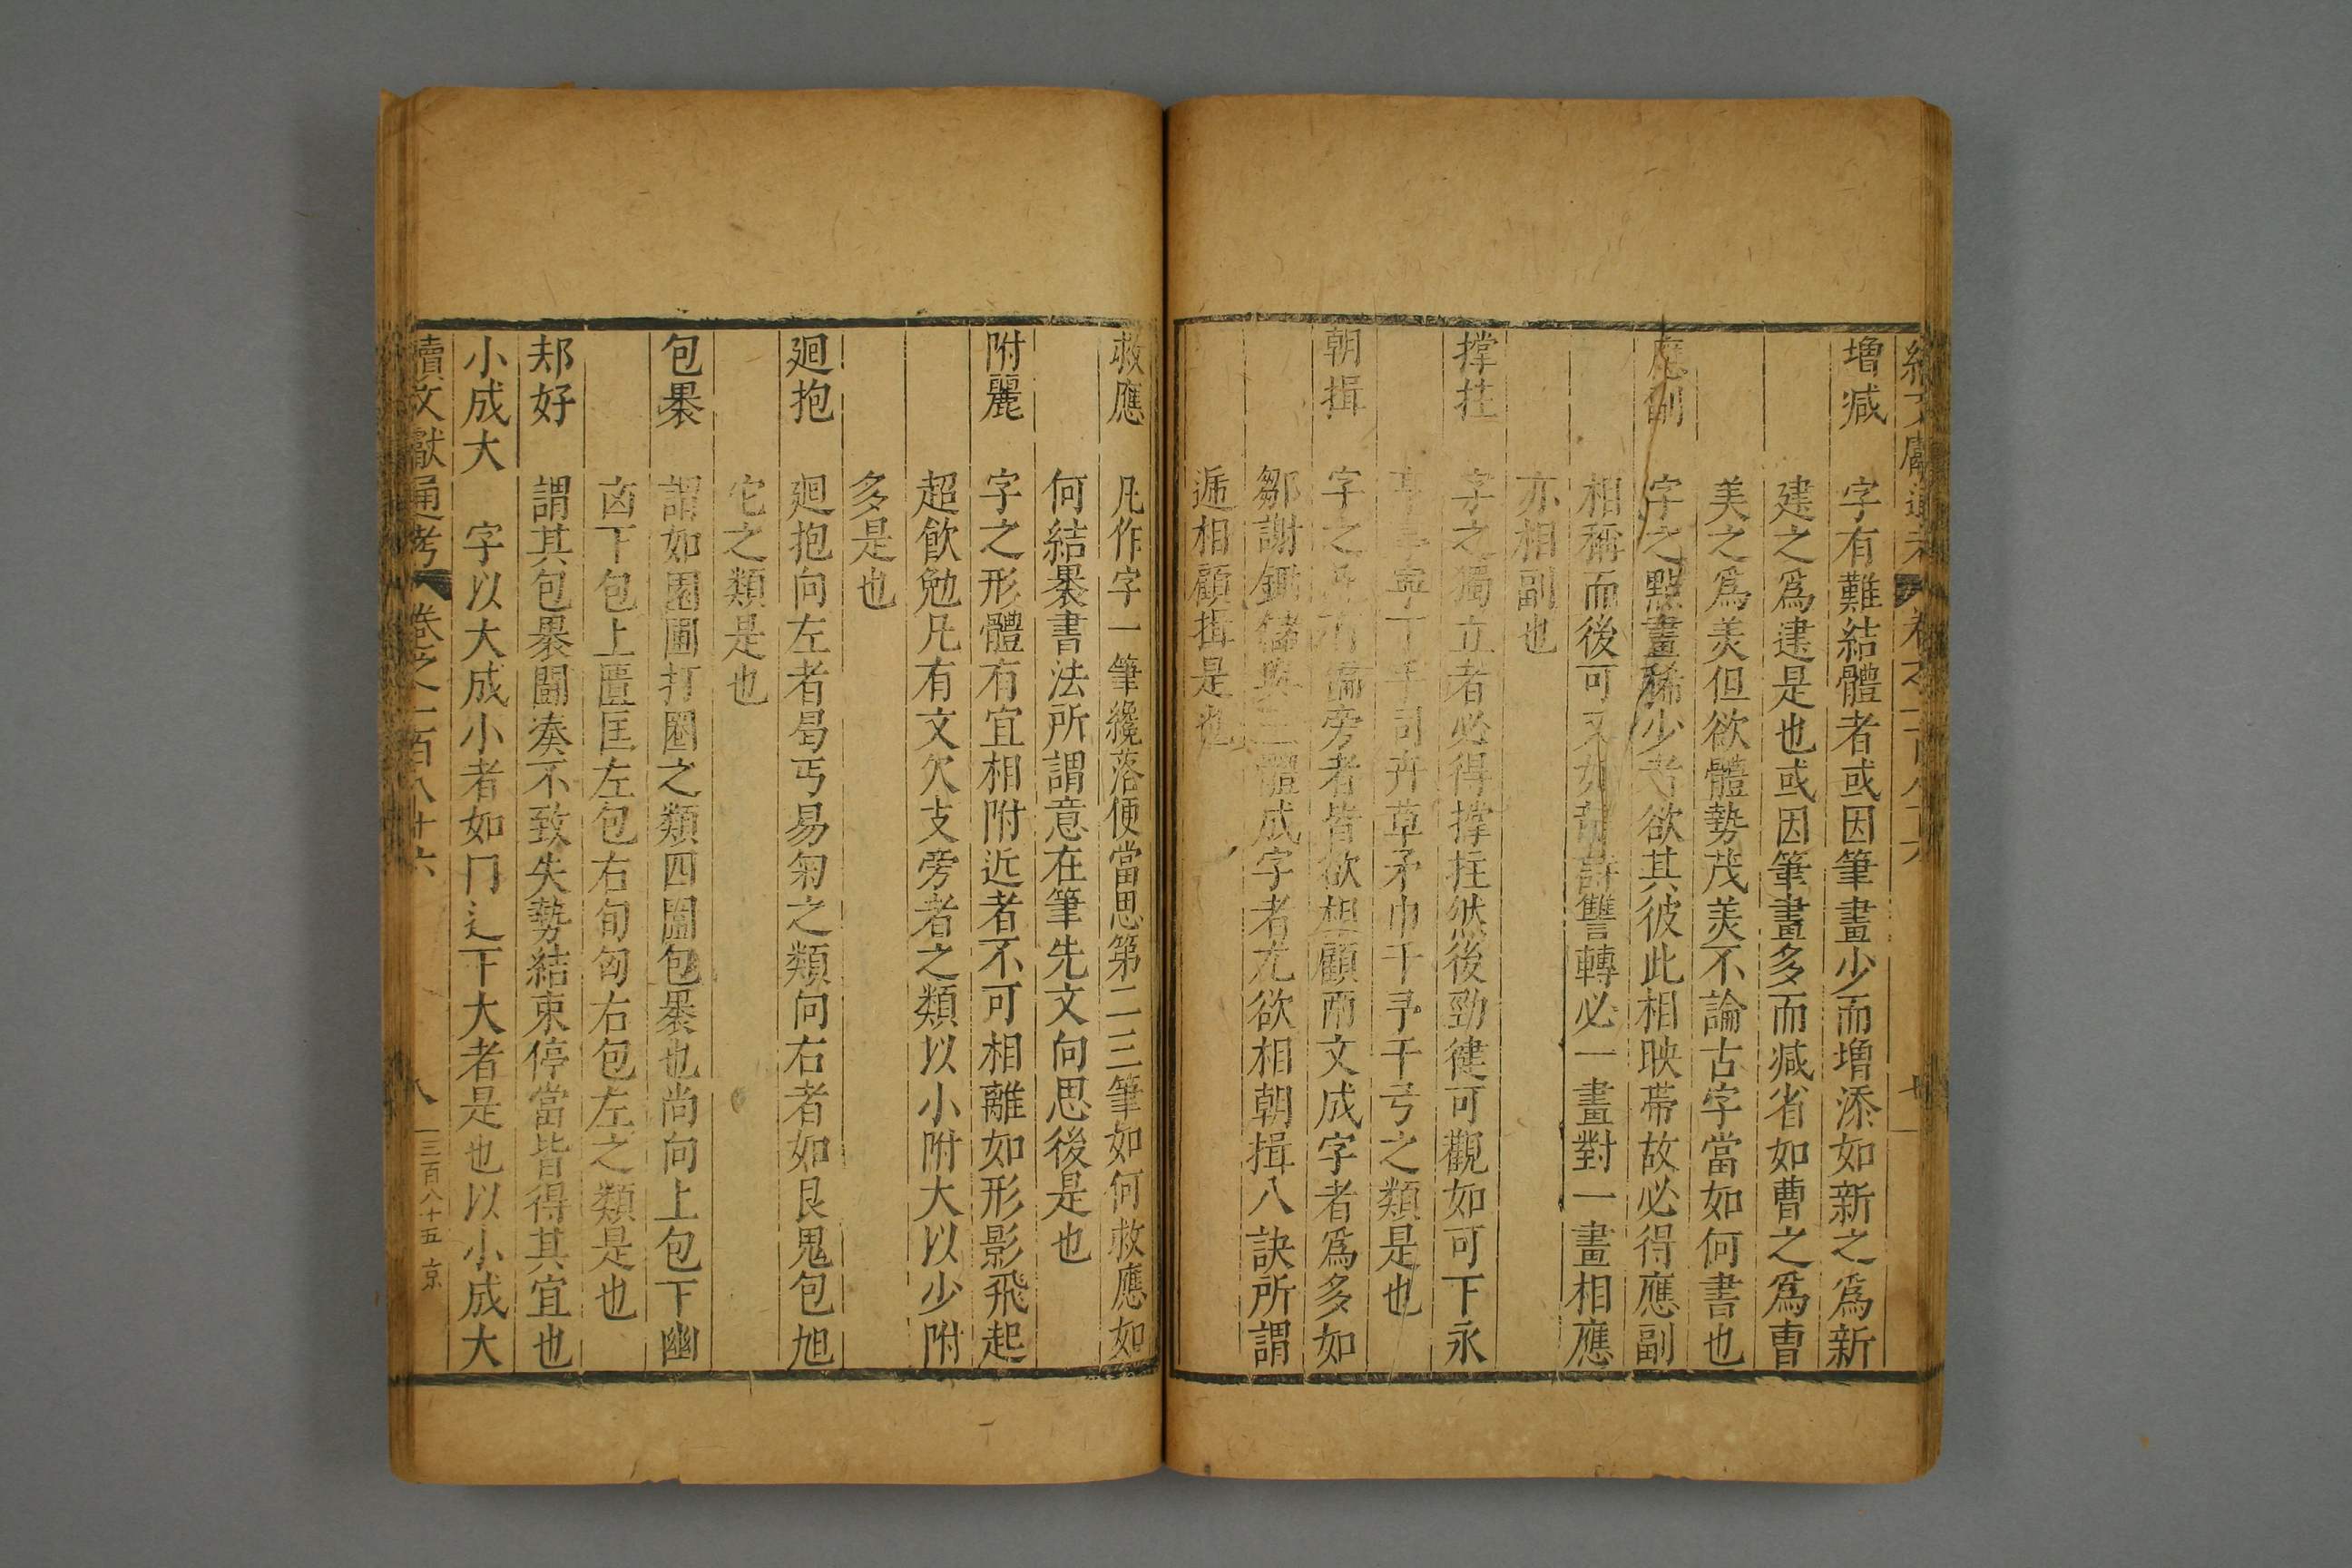 增減 字有難結體者或因筆畫少而增添如新之爲新
建之爲建是也或因筆畫多而減省如曹之爲曺
美之爲羙但欲體勢茂羙不論古字當如何書也
應副 字之點畫稀少者欲其彼此相映帶故必得應副
相稱而後可又如 詩讐轉必一畫對一畫相應
亦相副也
撐拄 字之獨立者必得撐拄然後勁健可觀如可下永
亭亭寧丁手司卉草矛巾千予于弓之類是也
朝揖 字之 有偏旁者皆欲相顧兩文成字者爲多如
鄒謝鋤儲與三體成字者尤欲相朝揖八訣所謂
遞相顧揖是也
救應 凡作字一筆纔落便當思第二三筆如何救應如
何結褁書法所謂意在筆先文向思後是也
附麗 字之形體有宜相附近者不可相離如形影飛起
超飲勉凡有文欠支旁者之類以小附大以少附
多是也
廻抱 廻抱向左者曷丐易匊之類向右者如艮鬼包旭
它之類是也
包褁 謂如園圃打圈之類四圍包褁也尚向上包下幽
凾下包上匱匡左包右旬匈右包左之類是也
却好 謂其包褁鬬湊不致失勢結束停當皆得其宜也
小成大 字以大成小者如门辶下大者是也以小成大
續文獻通考 卷之一百八十六 八 三百八十五 京